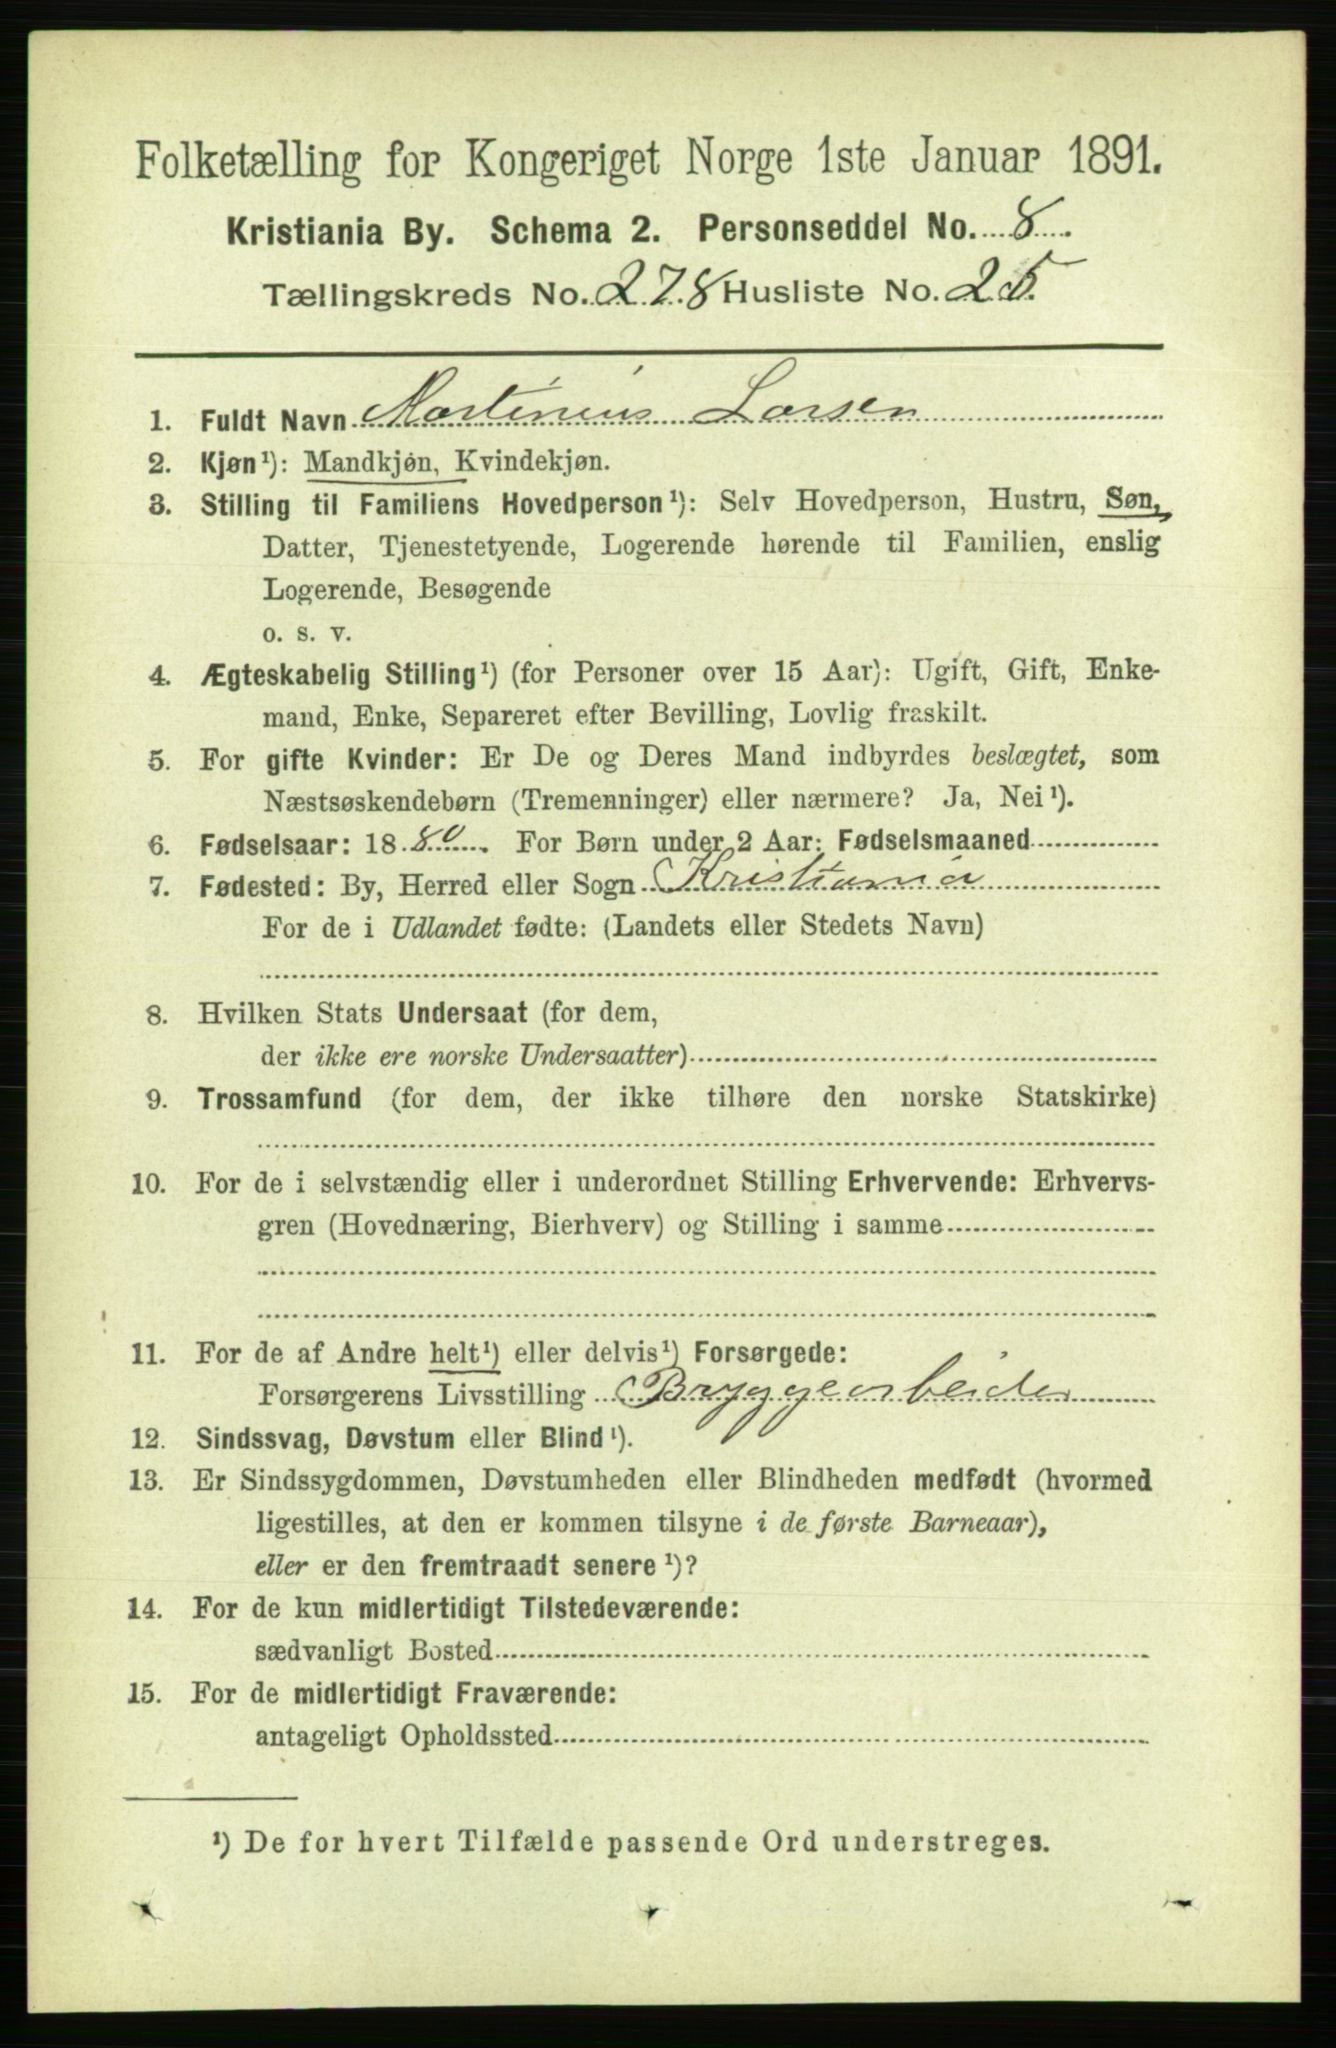 Folketælling for Kongeriget Norge 1ste Januar 1891.
Kristiania By. Schema 2. Personseddel No. 8
Tællingskreds No. 278 Husliste No. 25.
1. Fuldt Navn Martinius Larsen
2. Kjøn¹): Mandkjøn, Kvindekjøn.
3. Stilling til Familiens Hovedperson¹): Selv Hovedperson, Hustru, Søn,
Datter, Tjenestetyende, Logerende hørende til Familien, enslig
Logerende, Besøgende
o. s. v.
4. Ægteskabelig Stilling¹) (for Personer over 15 Aar): Ugift, Gift, Enke-
mand, Enke, Separeret efter Bevilling, Lovlig fraskilt.
5. For gifte Kvinder: Er De og Deres Mand indbyrdes beslægtet, som
Næstsøskendebørn (Tremenninger) eller nærmere? Ja, Nei¹).
6. Fødselsaar: 1880. For Børn under 2 Aar: Fødselsmaaned
7. Fødested: By, Herred eller Sogn Kristiania
For de i Udlandet fødte: (Landets eller Stedets Navn)
8. Hvilken Stats Undersaat (for dem,
der ikke ere norske Undersaatter)
9. Trossamfund (for dem, der ikke tilhøre den norske Statskirke)
10. For de i selvstændig eller i underordnet Stilling Erhvervende: Erhvervs-
gren (Hovednæring, Bierhverv) og Stilling i samme
11. For de af Andre helt¹) eller delvis¹) Forsørgede:
Forsørgerens Livsstilling Bryggearbeider
12. Sindssvag, Døvstum eller Blind¹).
13. Er Sindssygdommen, Døvstumheden eller Blindheden medfødt (hvormed
ligestilles, at den er kommen tilsyne i de første Barneaar),
eller er den fremtraadt senere¹)?
14. For de kun midlertidigt Tilstedeværende:
sædvanligt Bosted
15. For de midlertidigt Fraværende:
antageligt Opholdssted
¹) De for hvert Tilfælde passende Ord understreges.